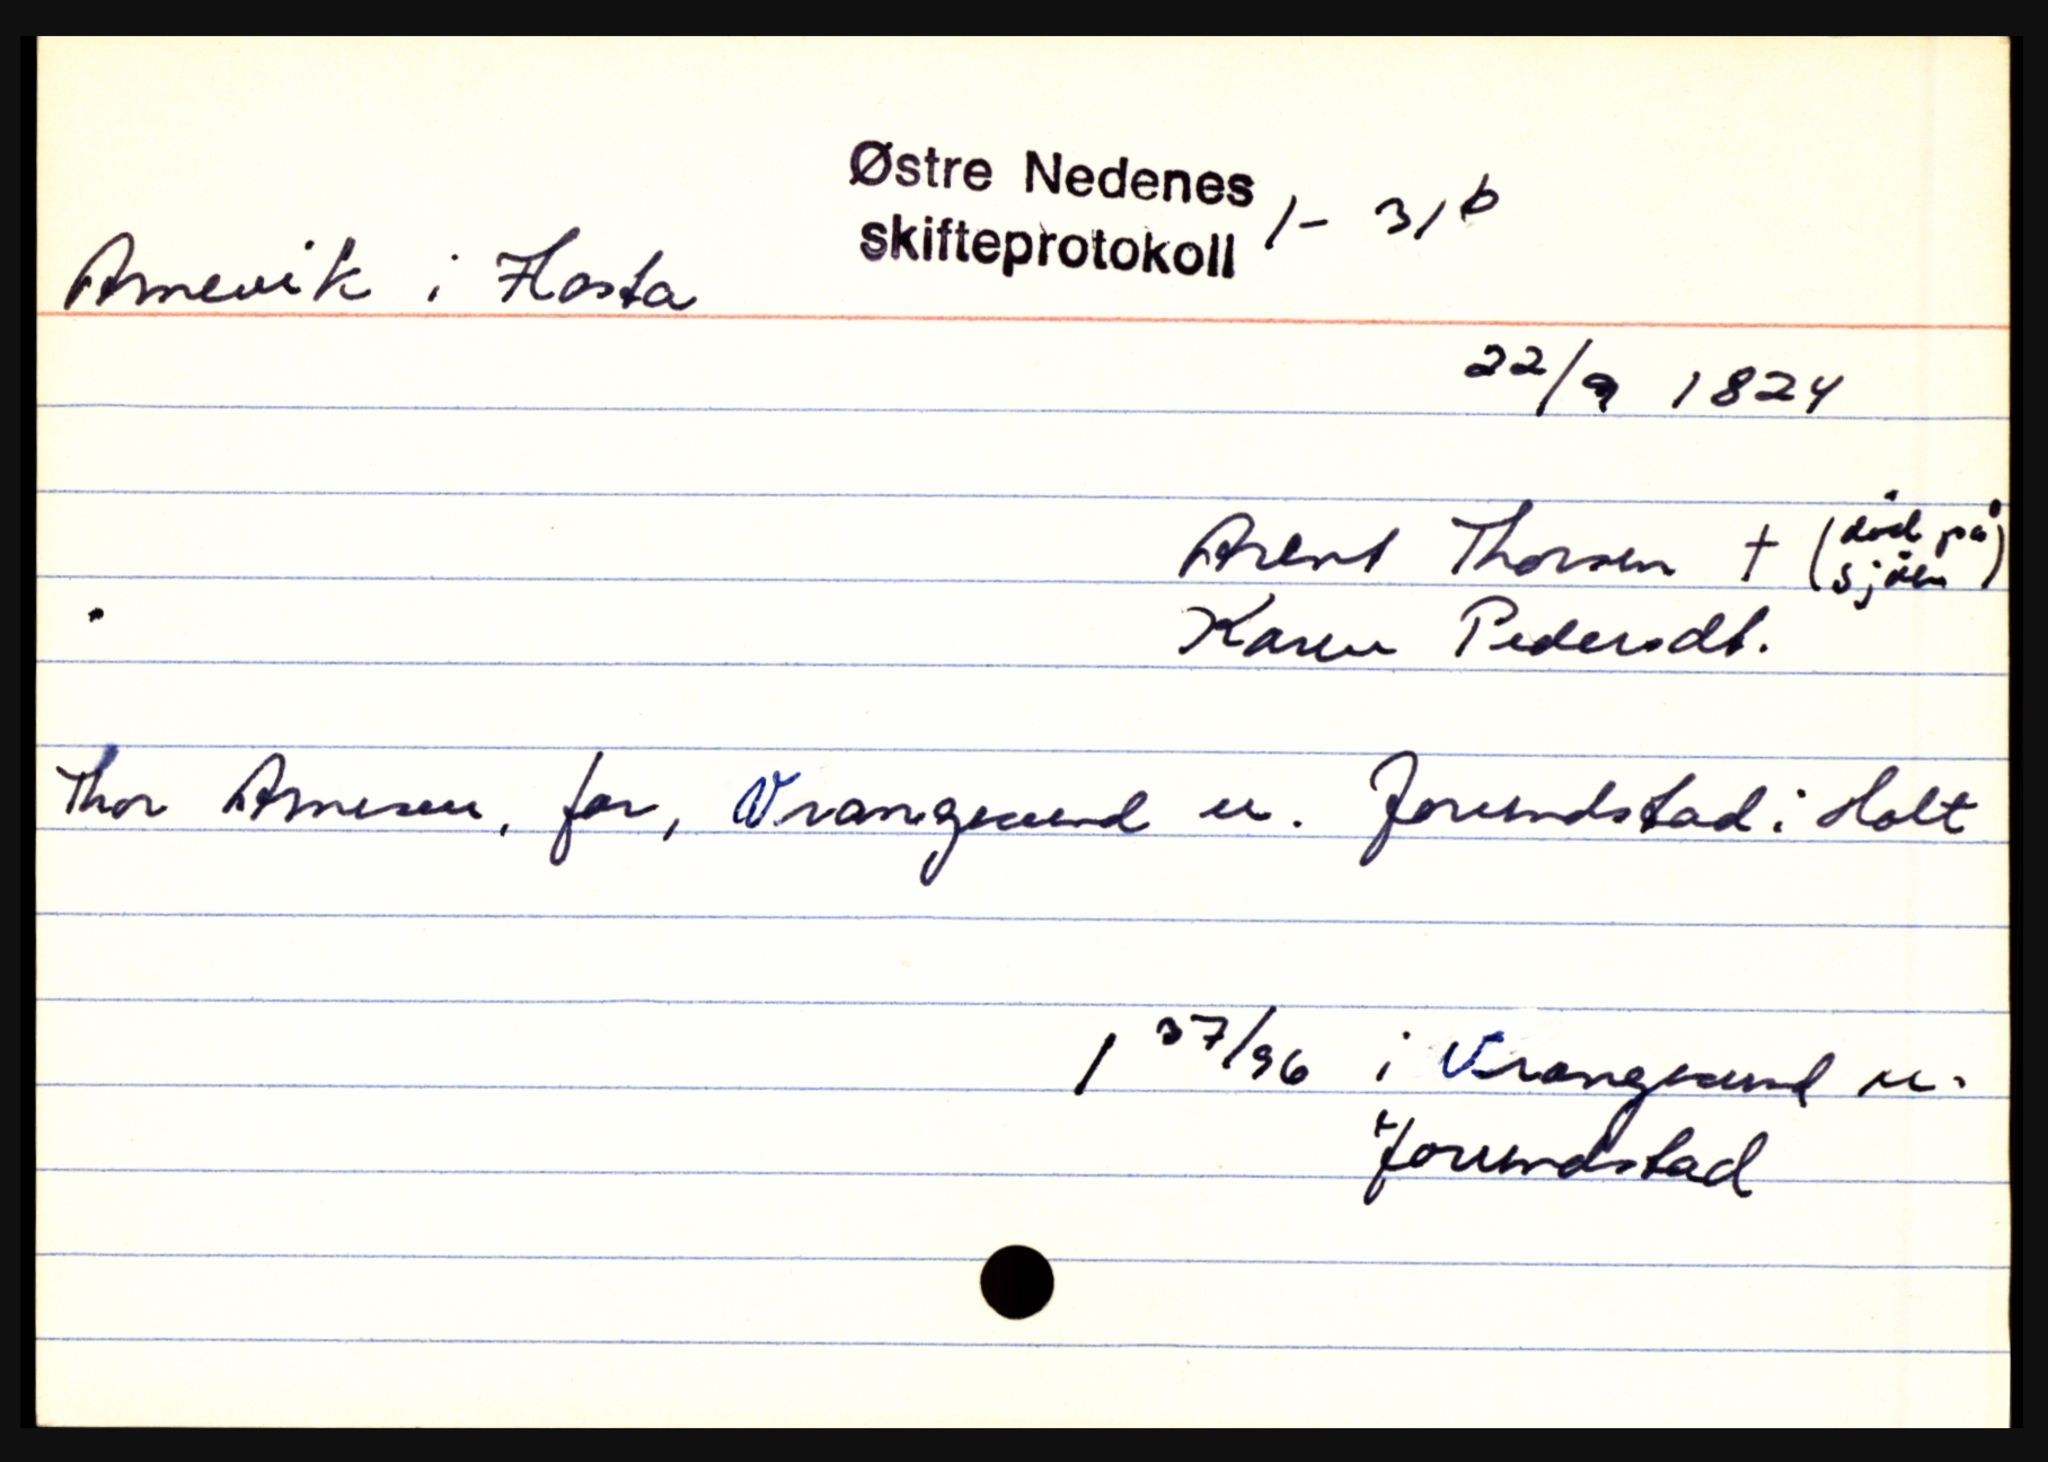 Østre Nedenes
skifteprotokoll 1- 31b
Arnevik i Flosta
22/9 1824
Arent Thorsen † (död på sjöen)
Karen Pedersdt.
Thor Arnesen, far, Vrangsund u. Jorundstad i Holt
1 37/96 i Vrangsund u.
Jorundstad